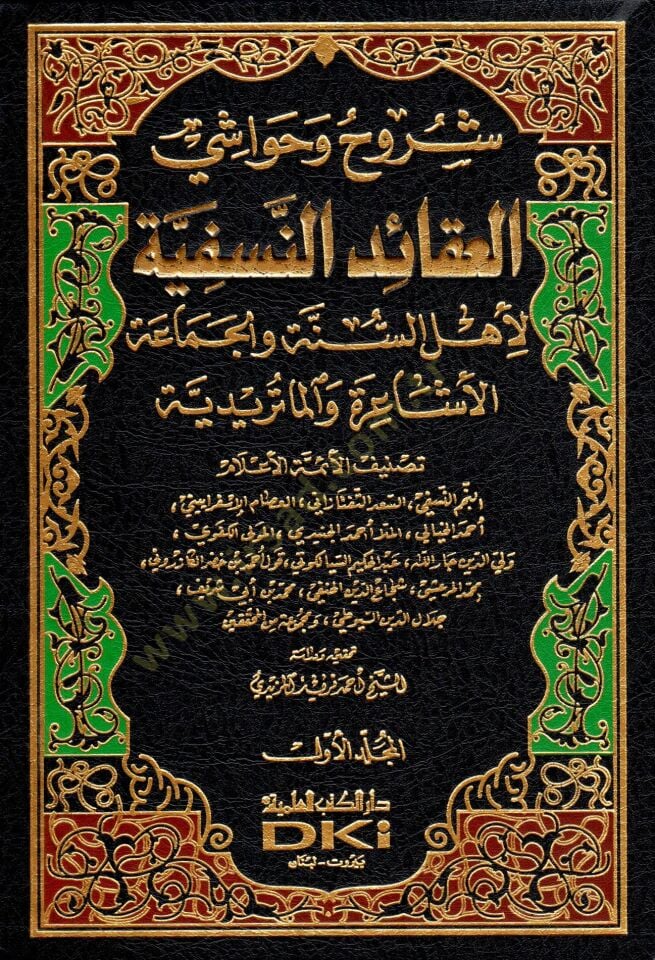 شروح وحواشي
العقائد النسفية
لأهل السنة والجماعة
الأشاعرة والماتريدية
تصنيف الأئمة الأعلام
النجم النسفي، السعد التفتازاني، العصام الإسفراييني،
أحمد الخيالي، الملا أحمد الجنيدي، المولى الكفوي،
ولي الدين جار الله، عبد الحكيم السيالكوتي، قول أحمد بن خضر الكازروني،
محمد المرعشي، شجاع الدين الحنفي، محمد بن أبي شريف،
جلال الدين السيوطي، ومجموعة من المحققين
تحقيق ودراسة
الشيخ أحمد فريد المزيدي
المجلد الأول
دار الكتب العلمية
DKi
بيروت - لبنان